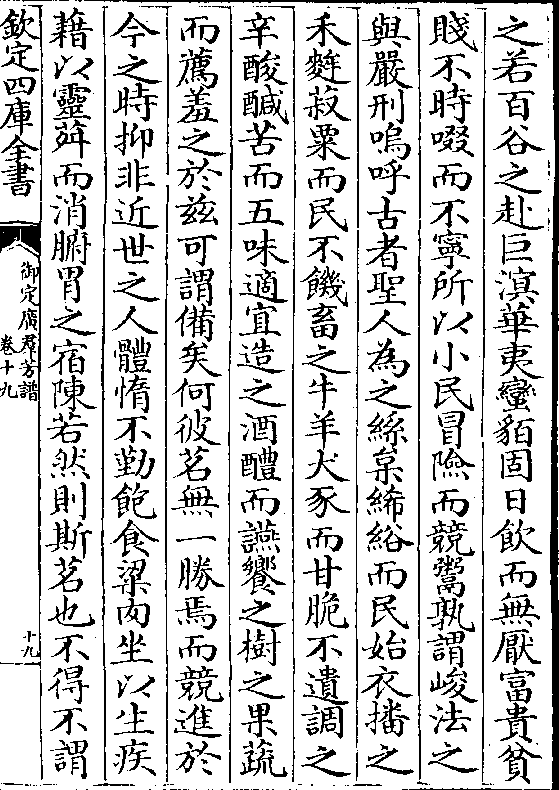 之若百谷之赴巨溟華夷蠻貊固日飲而無厭富貴貧
賤不時啜而不寧所以小民冒險而競鬻孰謂峻法之
與嚴刑嗚呼古者聖人為之絲枲絺綌而民始衣播之
禾麰菽粟而民不饑畜之牛羊犬豕而甘脆不遺調之
辛酸鹹苦而五味適宜造之酒醴而讌饗之樹之果蔬
而薦羞之於兹可謂備矣何彼茗無一勝焉而競進於
今之時抑非近世之人體惰不勤飽食粱肉坐以生疾
藉以靈荈而消腑胃之宿陳若然則斯茗也不得不謂
欽定四庫全書
御定廣羣芳譜
卷十九
十九